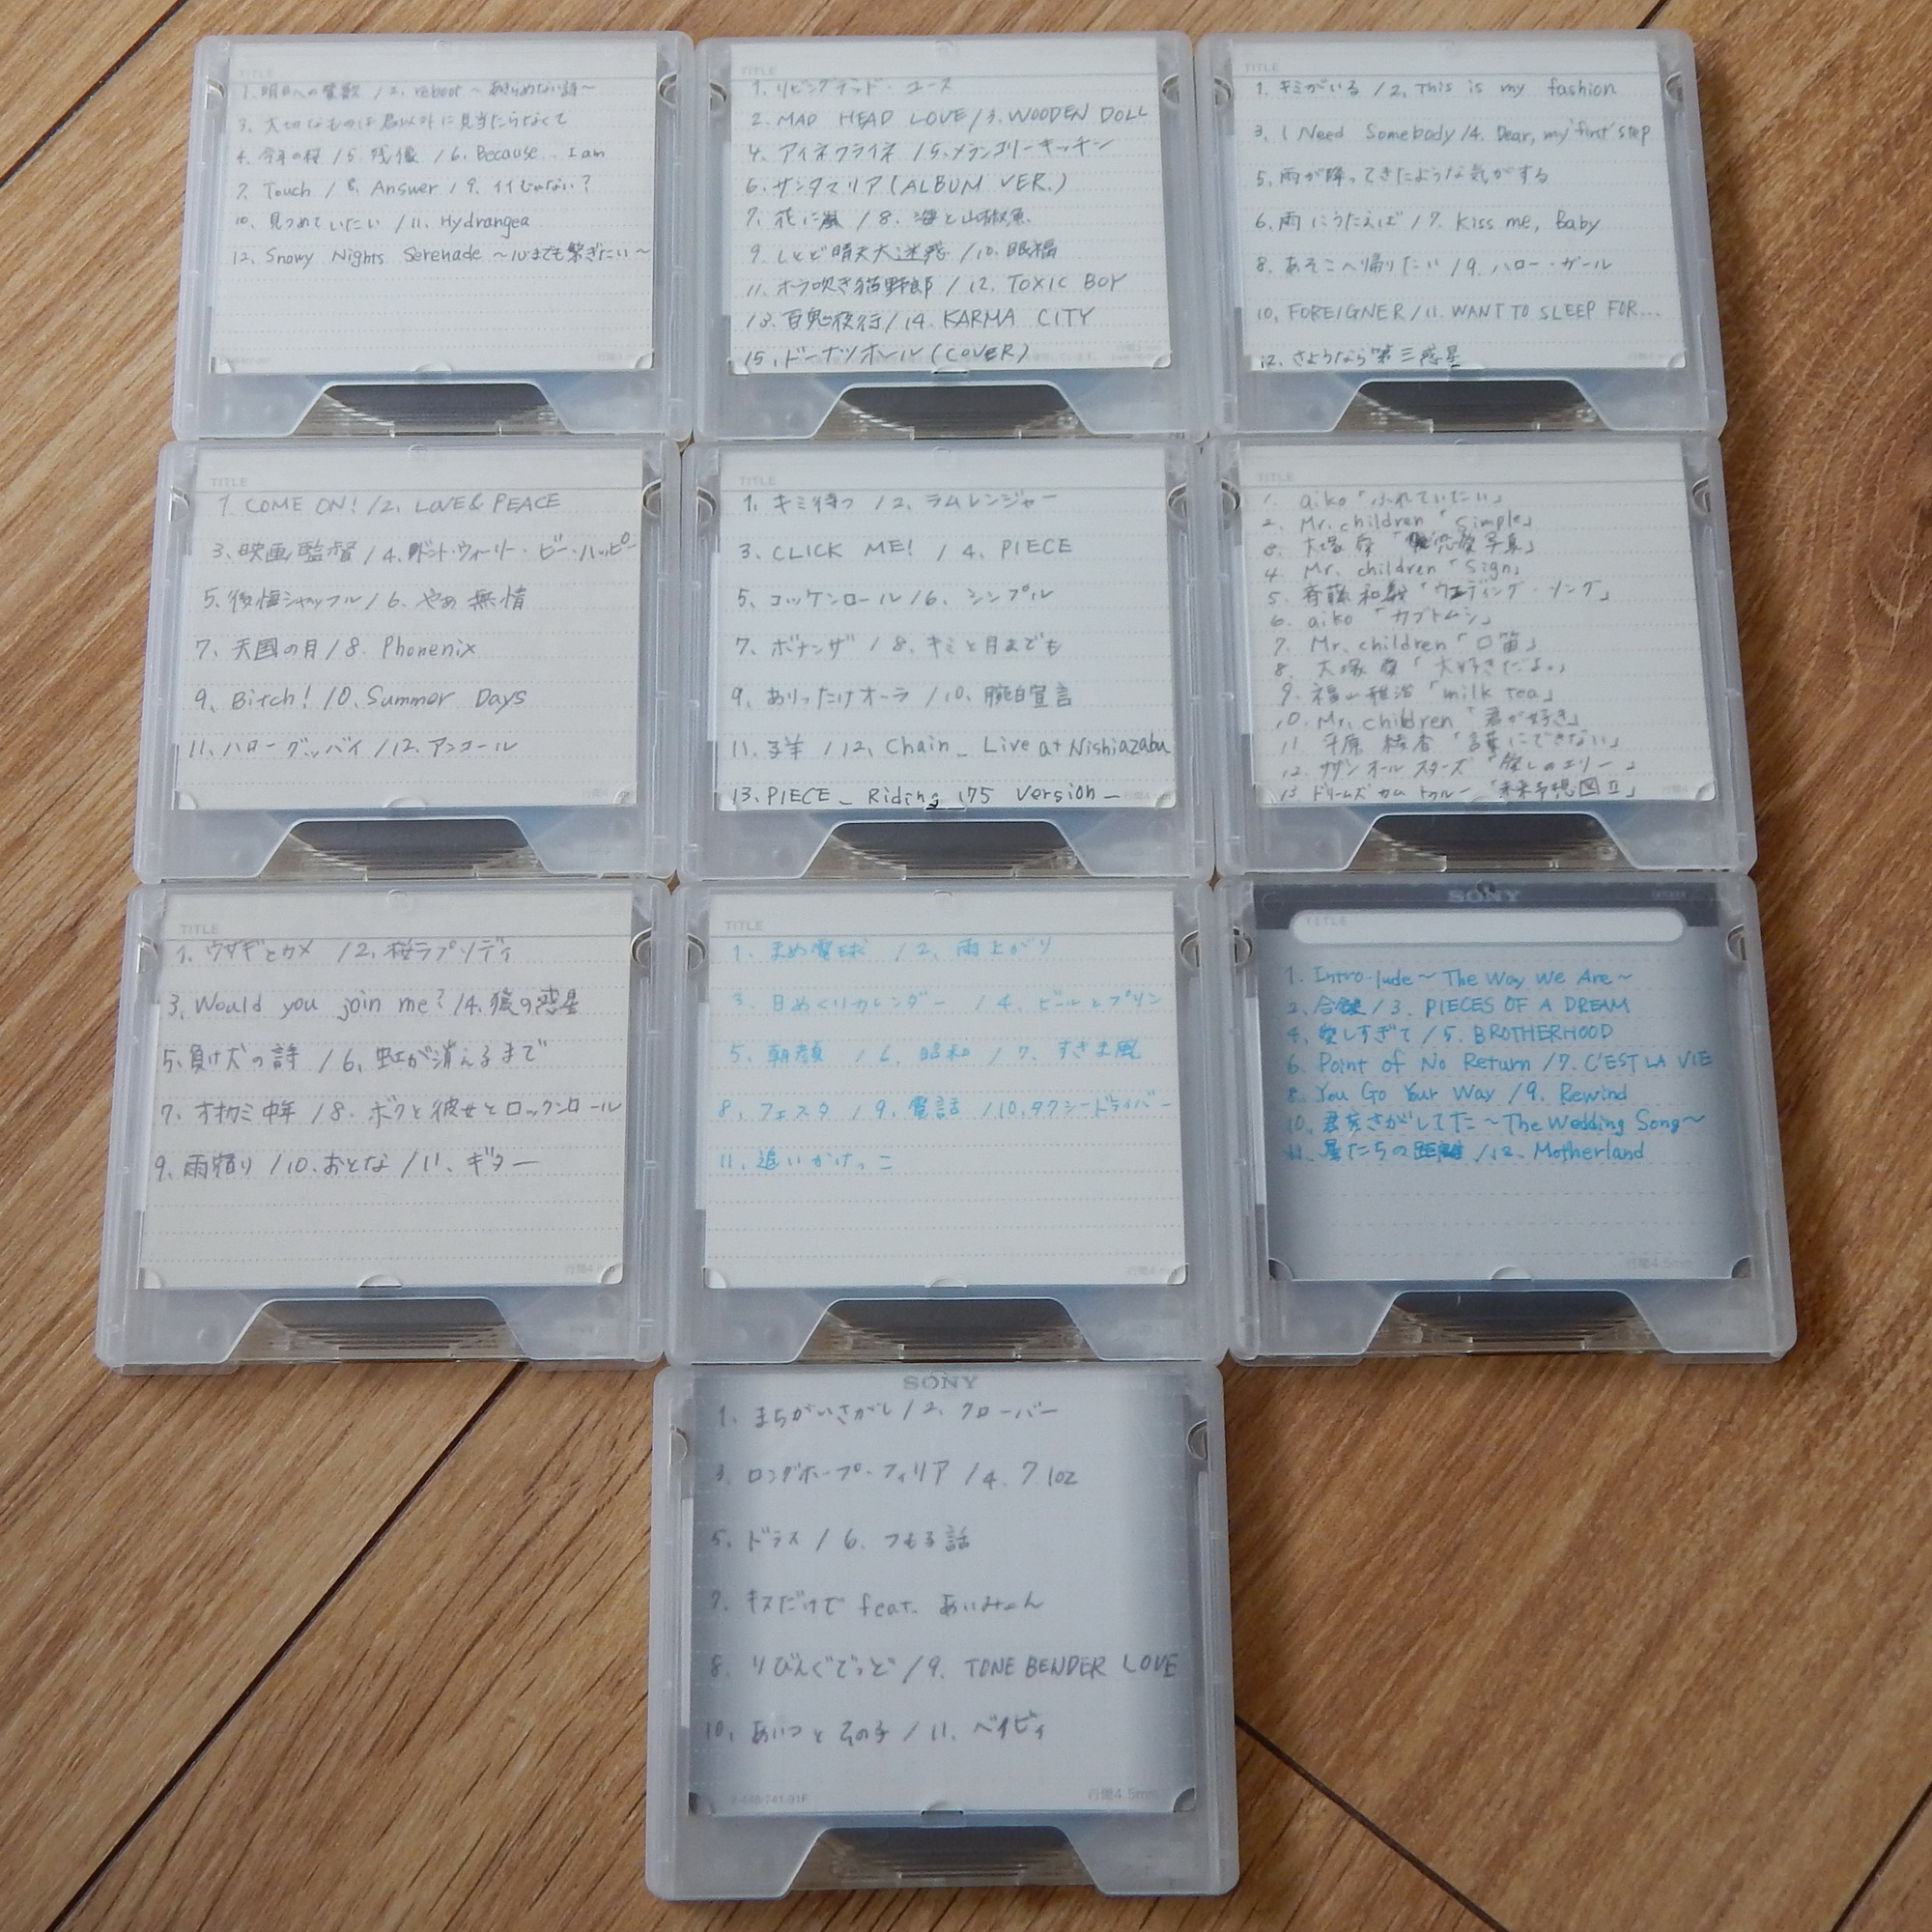 TITLE
1. 明日への賛歌 / 2. reboot ～あきらめない詩～
3. 大切なものは君以外に見当たらなくて
4. 今年の桜 / 5. 残像 / 6. Because... I am
7. Touch / 8. Answer / 9. イイじゃない?
10. 見つめていたい / 11. Hydrangea
12. Snowy Nights Serenade ～心までも繋ぎたい～
TITLE
1. リビングデッド・ユース
2. MAD HEAD LOVE / 3. WOODEN DOLL
4. アイネクライネ / 5. メランコリーキッチン
6. サンタマリア (ALBUM VER.)
7. 花に嵐 / 8. 海と山椒魚
9. しとど晴天大迷惑 / 10. 眼福
11. ホラ吹き猫野郎 / 12. TOXIC BOY
13. 百鬼夜行 / 14. KARMA CITY
15. ドーナツホール (COVER)
TITLE
1. キミがいる / 2. This is my fashion
3. I Need Somebody / 4. Dear, my first step
5. 雨が降ってきたような気がする
6. 雨にうたえば / 7. Kiss me, Baby
8. あそこへ帰りたい / 9. ハロー・ガール
10. FOREIGNER / 11. WANT TO SLEEP FOR...
12. さようなら第三惑星
TITLE
1. COME ON! / 2. LOVE & PEACE
3. 映画監督 / 4. ドント・ウォーリー・ビー・ハッピー
5. 後悔シャッフル / 6. やめ 無情
7. 天国の月 / 8. Phonenix
9. Bitch! / 10. Summer Days
11. ハローグッバイ / 12. アンコール
TITLE
1. キミ待つ / 2. ラムレンジャー
3. CLICK ME! / 4. PIECE
5. コッケンロール / 6. シンプル
7. ボナンザ / 8. キミと月までも
9. ありったけオーラ / 10. 腕白宣言
11. 子羊 / 12. Chain _ Live at Nishiazabu
13. PIECE _ Riding 175 Version _
TITLE
1. aiko「ふれていたい」
2. Mr. children「Simple」
3. 大塚 愛「恋愛写真」
4. Mr. children「Sign」
5. 斉藤 和義「ウエディング・ソング」
6. aiko「カブトムシ」
7. Mr. children「口笛」
8. 大塚 愛「大好きだよ。」
9. 福山雅治「milk tea」
10. Mr. children「君が好き」
11 平原 綾香「言葉にできない」
12. サザンオールスターズ「愛しのエリー」
13 ドリームズ カム トゥルー「未来予想図Ⅱ」
TITLE
1. ウサギとカメ / 2. 桜ラプソディ
3. Would you join me? / 4. 猿の惑星
5. 負け犬の詩 / 6. 虹が消えるまで
7. オオカミ中年 / 8. ボクと彼女とロックンロール
9. 雨宿り / 10. おとな / 11. ギター
TITLE
1. まめ電球 / 2. 雨上がり
3. 日めくりカレンダー / 4. ビールとプリン
5. 朝顔 / 6. 昭和 / 7. すきま風
8. フェスタ / 9. 電話 / 10. タクシードライバー
11. 追いかけっこ
SONY
TITLE
1. Intro-lude ～ The Way We Are ～
2. 合鍵 / 3. PIECES OF A DREAM
4. 愛しすぎて / 5. BROTHERHOOD
6. Point of No Return / 7. C'EST LA VIE
8. You Go Your Way / 9. Rewind
10. 君をさがしてた ～The Wedding Song～
11. 星たちの距離 / 12. Motherland
行間4.5mm
SONY
1. まちがいさがし / 2. クローバー
3. ロングホープ・フィリア / 4. 7.1oz
5. ドラス / 6. つもる話
7. キスだけで feat. あいみょん
8. りびんぐでっど / 9. TONE BENDER LOVE
10. あいつとその子 / 11. ベイビィ
行間4.5mm